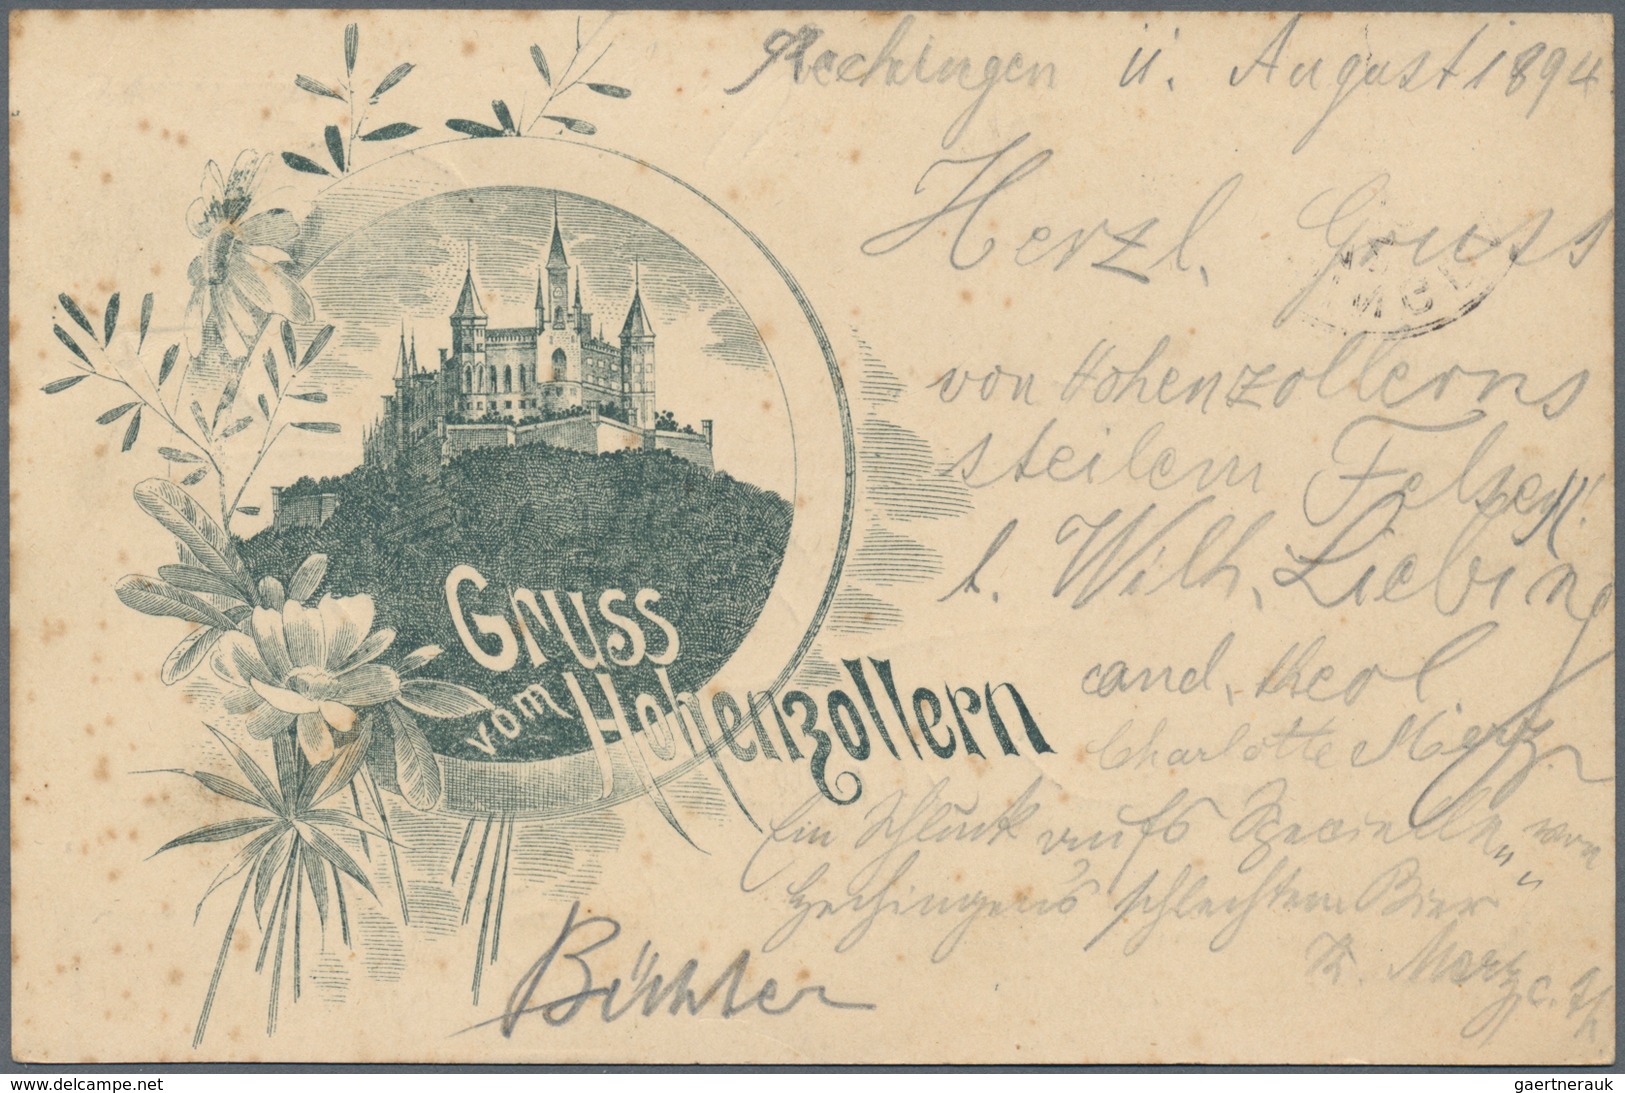 Hechingen 11. August 1894
Herzl. Gruss
von Hohenzollerns
steilem Felsen.
t. Wilh. Liebing
cand. theol
Charlotte Merz
Ein Schluck aufs Specielle von
Hechingens "schlechtem Bier"
K. Merz c. th
Büchter
Gruss
vom Hohenzollern
gaertnerauk
delcampe.net